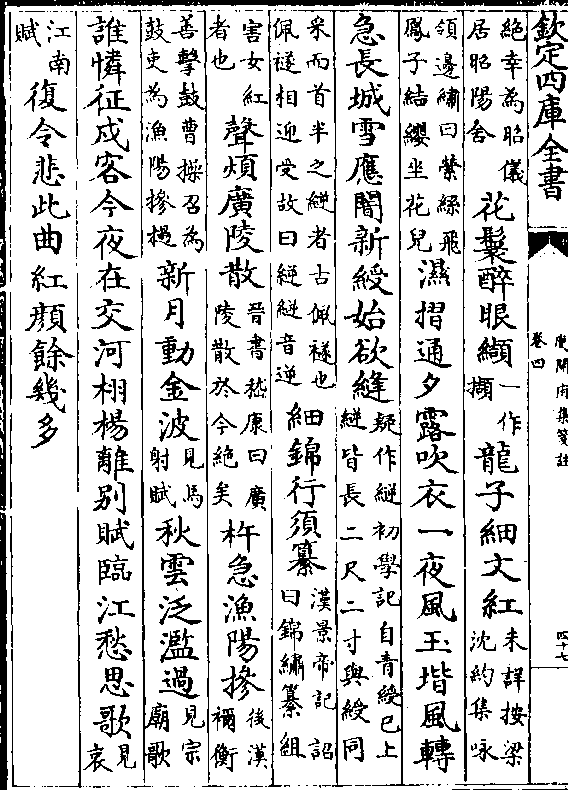 欽定四庫全書
庾開府集箋註
卷四
四十七
絶幸為昭儀
居昭陽舍
花鬟醉眼纈
一作
擷
龍子細文紅
未詳按梁
沈約集咏
領邊繡曰縈緑飛
鳳子結纓坐花兒
濕摺通夕露吹衣一夜風玉堦風轉
急長城雪應闇新綬始欲縫
疑作縌初學記自青綬已上
縌皆長二尺二寸與綬同
采而首半之縌者古佩襚也
佩襚相迎受故曰縌縌音逆
細錦行須纂
漢景帝記詔
曰錦繡纂組
害女紅
者也
聲煩廣陵散
晉書嵇康曰廣
陵散於今絶矣
杵急漁陽摻
後漢
禰衡
善擊鼓曹操召為
鼓吏為漁陽摻檛
新月動金波
見馬
射賦
秋雲泛濫過
見宗
廟歌
誰憐征戍客今夜在交河栩楊離别賦臨江愁思歌
見
哀
江南
賦
復令悲此曲紅顔餘幾多